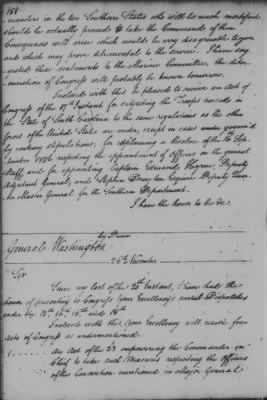 188
manders in the two Southern States who will be much mortified
should he actually proceed to take the Commands of them
Consequences will arise which would be very disagreable to you
and which may prove detrimental to the service. I have sug
gested these sentiments to the Marine Committee, the deter
mination of Congress will probably be known tomorrow.
Inclosed with this be pleased to receive an Act of
Congress of the Instant for subjecting the Troops raised in
the State of South Carolina to the same regulations as the other
forces of the United States are under, except in cases
by contrary stipulations, for explaining a Resolve of the 16 Sep
tember 1776 respecting the appointment of Officers on the general
Staff and for appointing Captain Edmund Hyrne Deputy
Adjutant General, and Stephen Drayton Esquire Deputy Quar
ter Master General for the Southern Department.
I have the honor to be &c.
by Dunn
General Washington
26th November
Sir
Since my last of the Instant, I have had the
honor of presenting to Congress your Excellency's several Dispatches
under the
Inclosed with this, Your Excellency will receive four
Acts of Congress as undermentioned
1. An Act of the 23 impowering the Commander in
Chief to take such Measures respecting the Officers
of the Convention mentioned in Major General